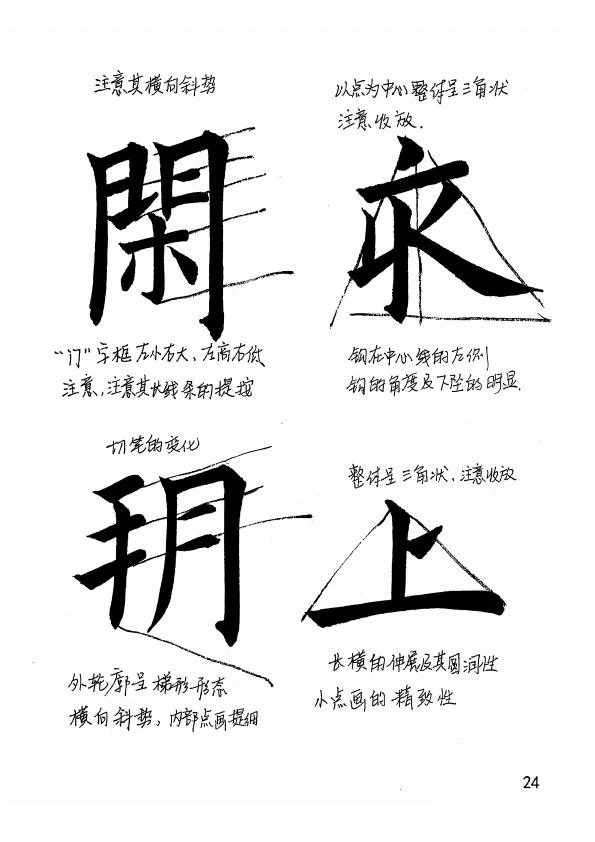 注意其横向斜势
以点为中心整体呈三角状
注意收放.
閑
永
"门"字框左小右大、左高右低
注意,注意其长线条的提按
钩在中心线的左侧
钩的角度及下坠的明显.
切笔的变化
整体呈三角状.注意收放
玥
上
外轮廓呈梯形形态
横向斜势,内部点画提细
长横的伸展及其圆润性
小点画的精致性
24